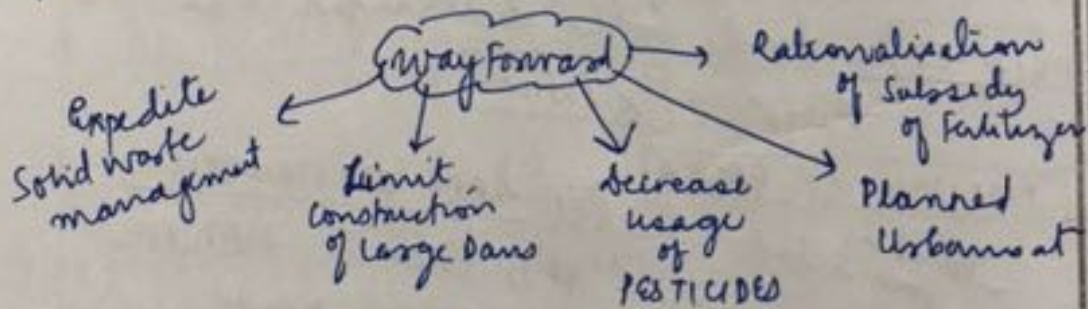 Way Forward
Expedite
Solid waste
management
Limit
construction
of Large Dams
Decrease
usage
of
PESTICIDES
Rationalisation
of Subsidy
of Fertilizer
Planned